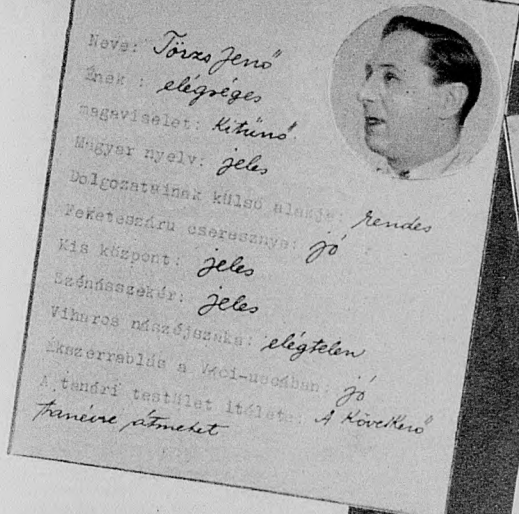 Neve: Törzs Jenő
Ének : elégséges
magaviselet: Kitünő.
Magyar nyelv: jeles
Dolgozatainak külső alakja: rendes
Feketeszáru cseresznye: jó
Kis központ: jeles
Szénásszekér: jeles
Viharos nászéjszaka: elégtelen
Ékszerrablás a Váci-uccában: jó
A tanári testület itélete: A Következő
tranévre átmehet